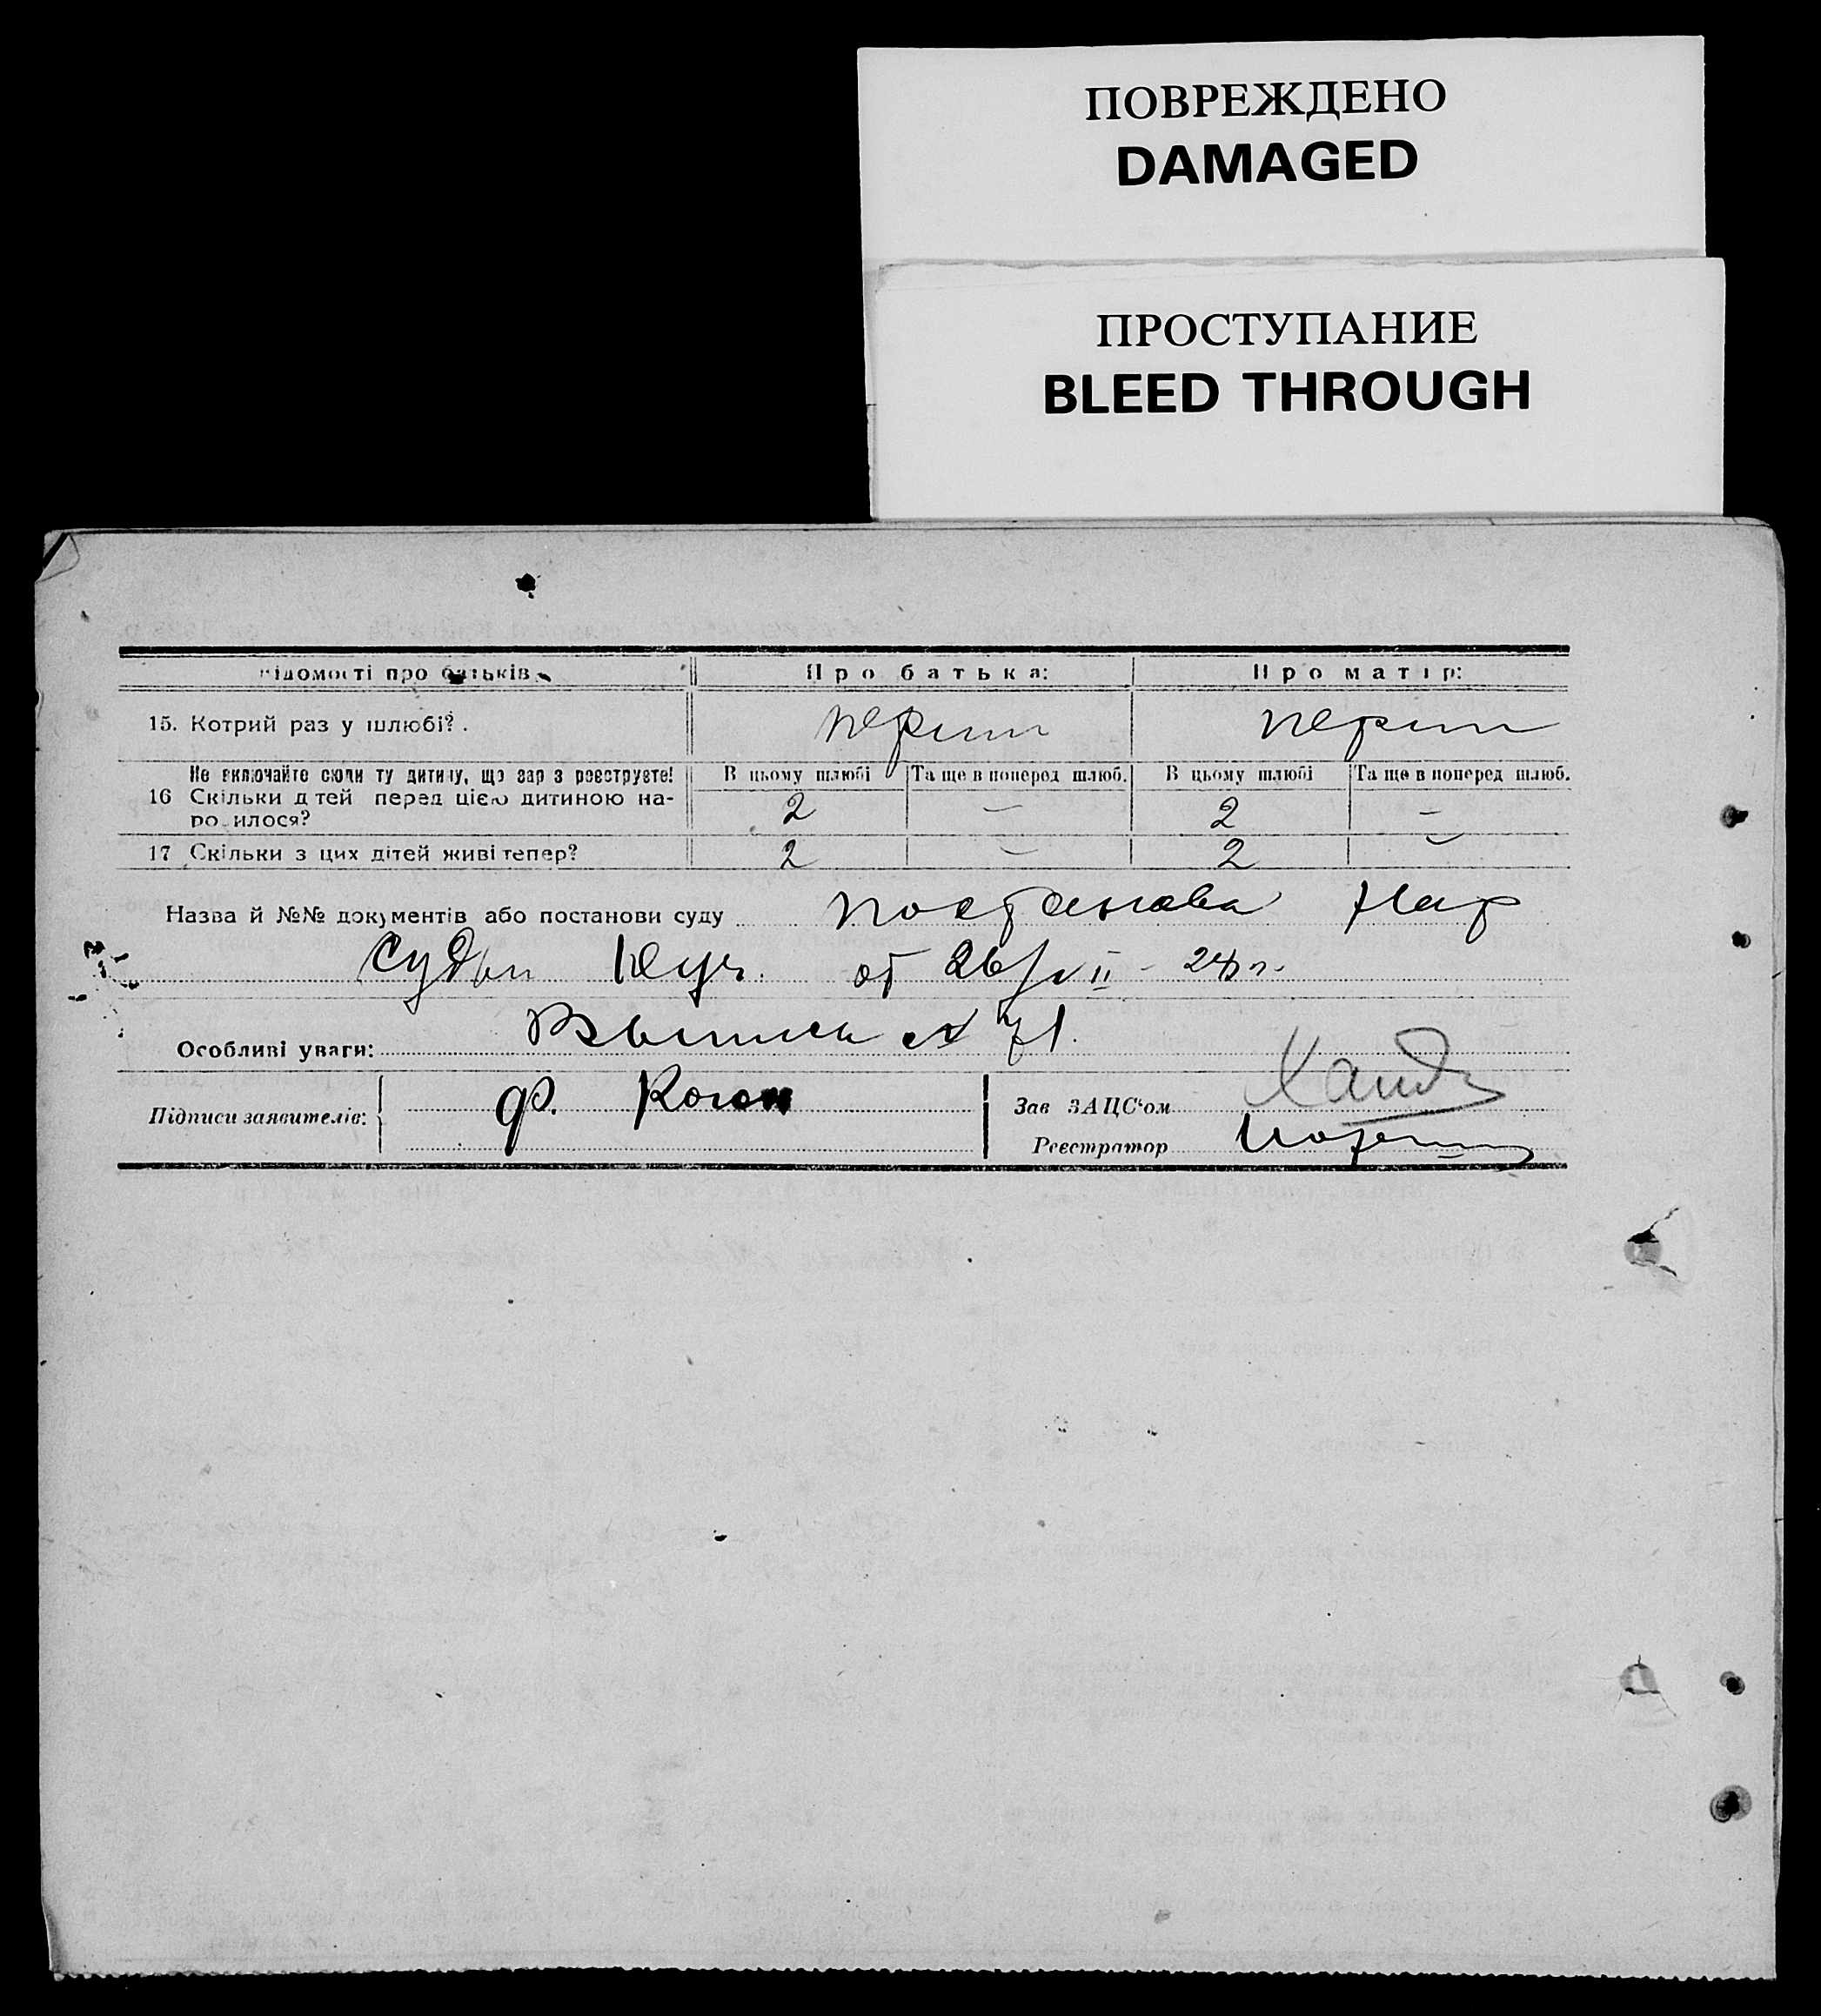 ПОВРЕЖДЕНО
DAMAGED
ПРОСТУПАНИЕ
BLEED THROUGH
відомості про батьків Про батька: Про матір:
15. Котрий раз у шлюбі? перший перший
Не включайте сюди ту дитину, що зараз реєструєте! В цьому шлюбі Та ще в поперед шлюб. В цьому шлюбі Та ще в поперед шлюб.
16 Скільки дітей перед цією дитиною на- 2 — 2 —
родилося?
17 Скільки з цих дітей живі тепер? 2 — 2 —
Назва й №№ документів або постанови суду постанова Нар
судьи от 26/VII - 28 г.
Особливі уваги: Выпись № 71.
Підписи заявителів: Ф. Коган Зав ЗАЦС'ом
Реєстратор